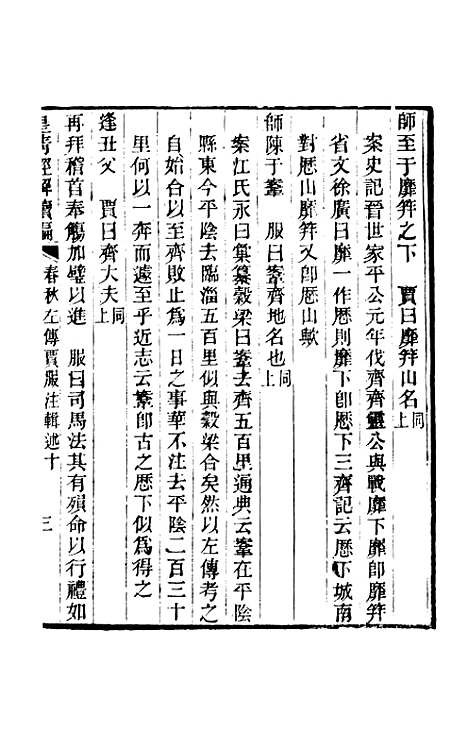 師至于靡筓之下　賈曰靡筓山名同上
案史記晉世家平公元年伐齊齊靈公與戰靡下靡卽靡筓
省文徐廣曰靡一作歷則靡下卽歷下三齊記云歷下城南
對歷山靡筓又卽歷山歟
師陳于鞌　服曰鞌齊地名也同上
案江氏永曰彙纂穀梁曰鞌去齊五百里通典云鞌在平陰
縣東今平陰去臨淄五百里似與穀梁合矣然以左傳考之
自始合以至齊敗止爲一日之事華不注去平陰二百三十
里何以一奔而遽至乎近志云鞌卽古之歷下似爲得之
逢丑父　賈曰齊大夫同上
再拜稽首奉觴加璧以進　服曰司馬法其有殞命以行禮如
皇清經解續編　春秋左傳賈服注輯述十　三